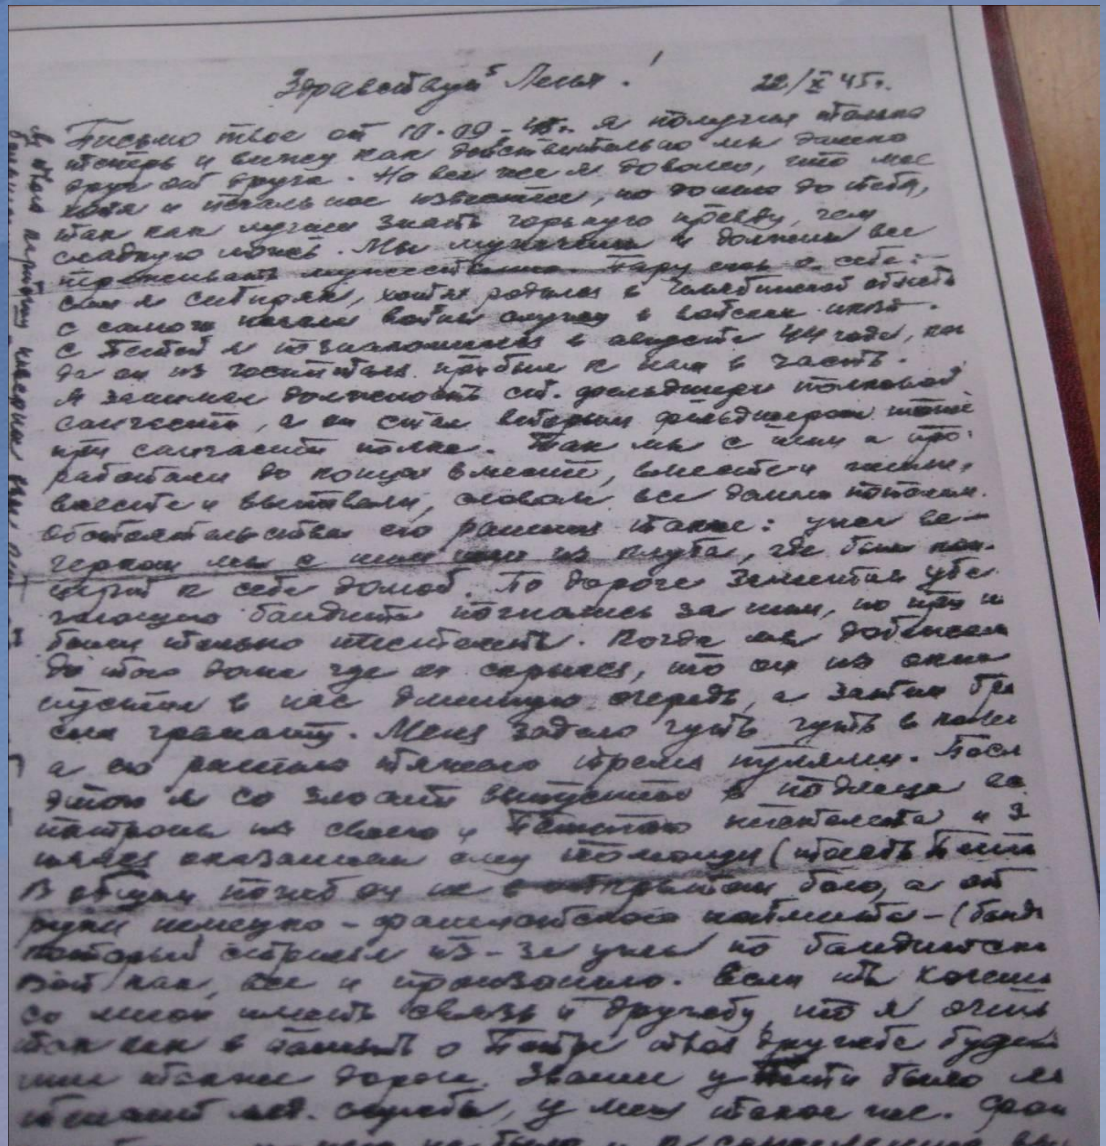 Здравствуй Леня!
22/X 45г.
Письмо твое от 10-09-45г. я получил только
теперь и вижу как действительно мы далеко
друг от друга. Но все же я доволен, что мое
хотя и печальное известие, но дошло до тебя,
так как лучше знать горькую правду, чем
сладкую ложь. Мы мужчины и должны все
переживать мужественно. Пару слов о себе:-
сам я сибиряк, хотя родился в Челябинской области
с самого начала войны служу в войсках НКВД.
с Петей я познакомился в августе 44 года, ког
да он из госпиталя прибыл к нам в часть.
Я занимал должность ст. фельдшера полковой
санчасти, а он стал вторым фельдшером
при санчасти полка. Так мы с ним и про-
работали до конца вместе, вместе и
вместе и выпивали, словом все делили пополам.
Обстоятельства его ранения такие: уже ве-
чером мы с ним шли из клуба, где был кон-
церт к себе домой. По дороге заметили убе-
гающего бандита погнались за ним, но при
были только пистолеты. Когда мы добежали
до того дома где он скрылся, то он из окна
пустил в нас длинную очередь, а затем бро
сил гранату. Меня задело чуть чуть в
а его ранило тяжело тремя пулями. После
этого я со злости выпустил в подлеца все
патроны из своего и Петиного пистолета и
оказанием ему помощи (
В общем погиб он не в открытом бою, а от
руки немецко-фашистского - (банд
который стрелял из-за угла по бандитски
Вот как, все и произошло. Если ты хочешь
со мной иметь связь и дружбу, то я очень
так как в память о Пете твоя дружба будет
мне также дорога. Звание у Пети было
лейтенант мед. службы, у меня такое же.